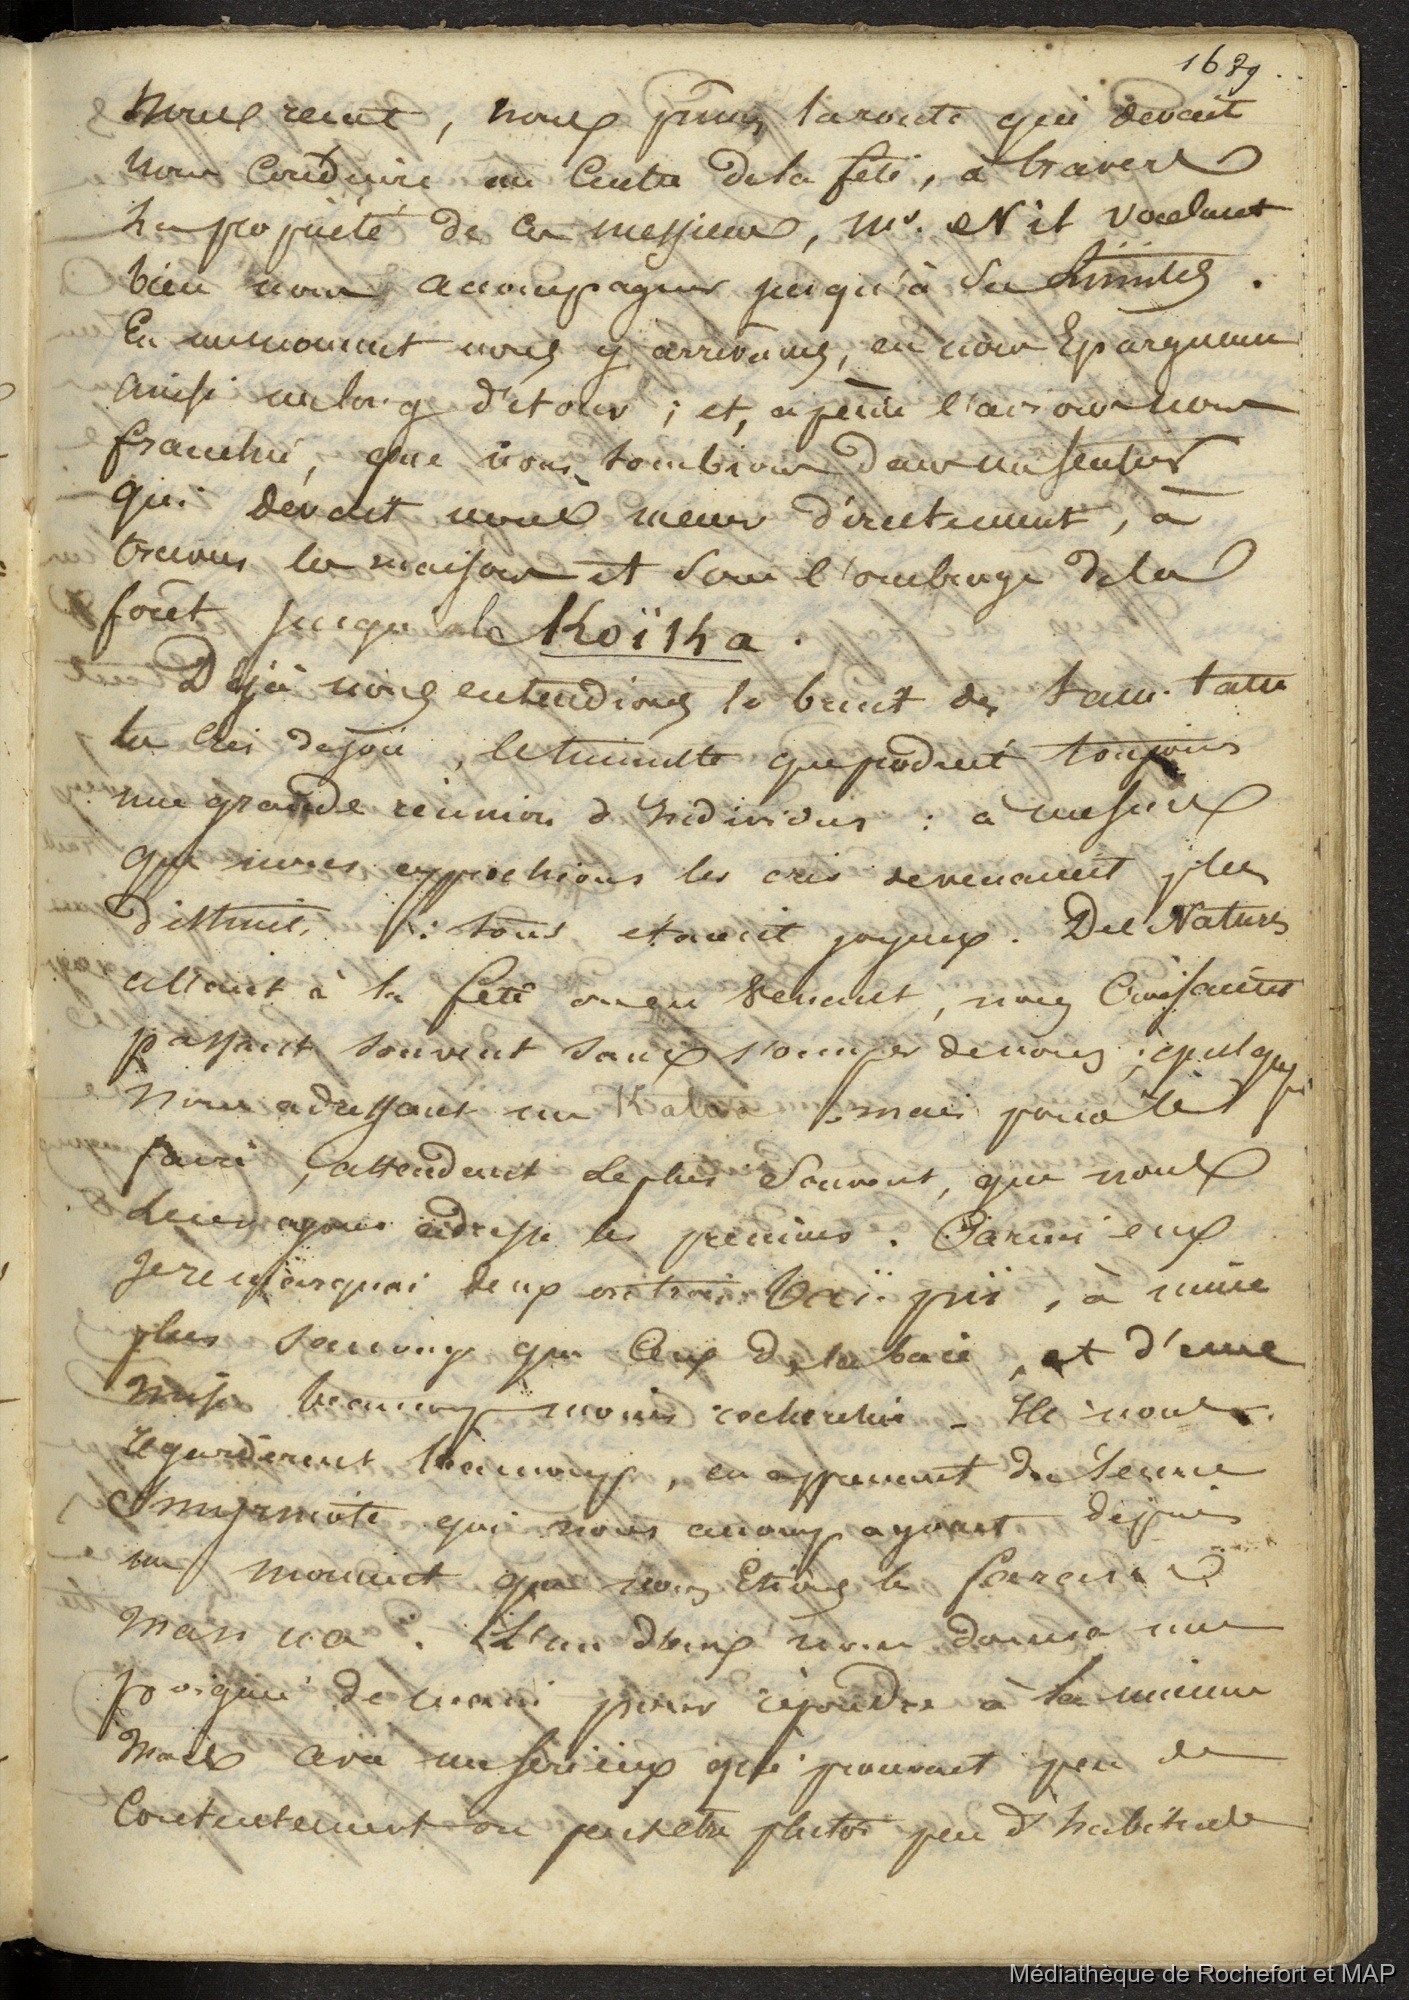 1689.
nous reçut, nous prîmes la route qui devait
nous conduire au Centre de la fête, à travers
la propriété de ces messieurs, Mr. Nil voulant
bien nous accompagner jusqu'à ses limites.
En un moment nous y arrivâmes, en nous Epargnant
ainsi un long détour ; et, à peine l'avions nous
franchie, que nous tombions dans un sentier
qui devait nous mener directement, à
travers les maisons et sous l'ombrage de la
forêt jusqu'à la Koïka.
Déjà nous entendions le bruit des tam-tam
les cris de joie, le tumulte que produit toujours
une grande réunion d'individus : à mesure
que nous approchions les cris devenaient plus
distincts : tous étaient joyeux. Des Naturels
allant à la fête ou en venant, nous Croisaient
passant souvent sans s'occuper de nous ; quelques
nous adressant un Kaloa ; mais pour le
faire, attendant le plus Souvent, que nous
leur ayons adressé les premiers. Parmi eux
je remarquai deux ou trois Taï-pii, à mine
plus sauvage que Ceux de la baie, et d'une
mise beaucoup moins recherchée - Ils nous
regardèrent beaucoup, en apprenant du jeune
qui nous accompagnait depuis
un moment que nous Etions le
L'un d'eux nous donna une
poignée de main pour répondre à la mienne
mais avec un sérieux qui prouvait peu de
Contentement ou peut être plutôt peu d'habitude
Médiathèque de Rochefort et MAP